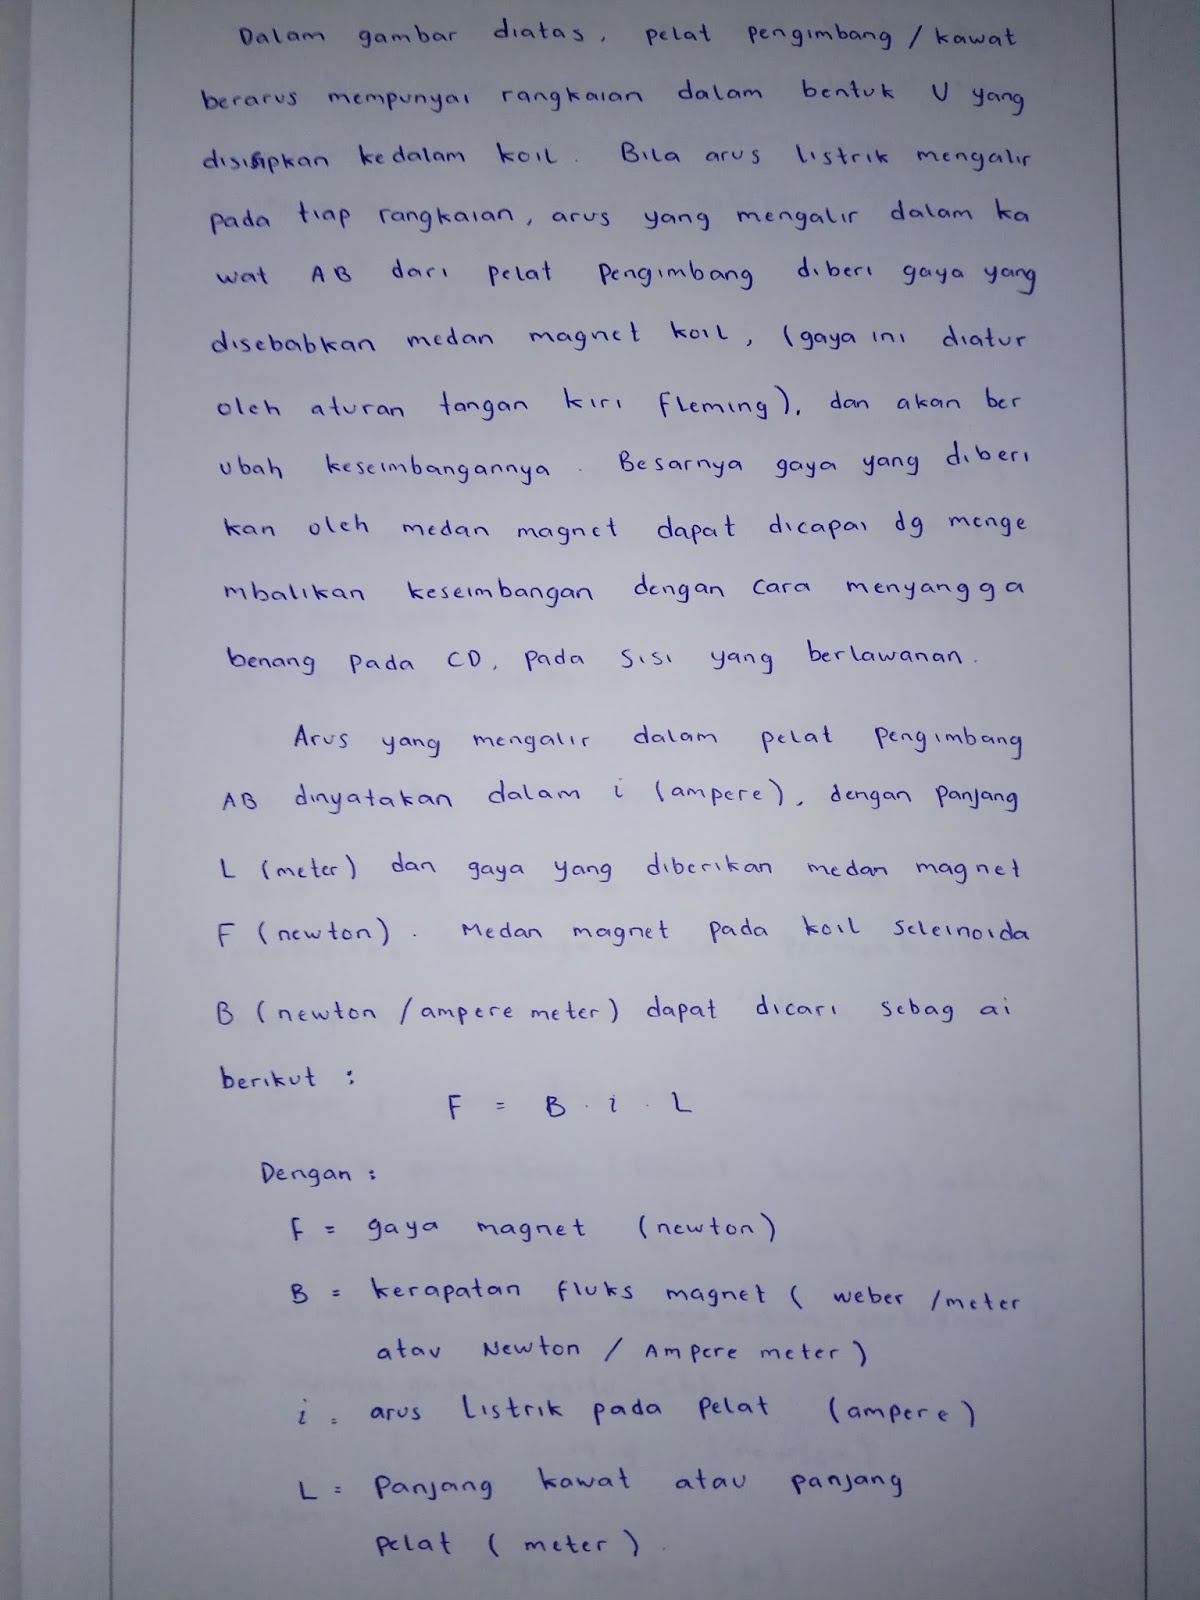 Dalam gambar diatas, pelat pengimbang / kawat
berarus mempunyai rangkaian dalam bentuk U yang
disisipkan kedalam koil. Bila arus listrik mengalir
pada tiap rangkaian, arus yang mengalir dalam ka
wat AB dari pelat pengimbang diberi gaya yang
disebabkan medan magnet koil, (gaya ini diatur
oleh aturan tangan kiri Fleming), dan akan ber
ubah keseimbangannya. Besarnya gaya yang diberi
kan oleh medan magnet dapat dicapai dg menge
mbalikan keseimbangan dengan cara menyangga
benang pada CD, pada sisi yang berlawanan.
Arus yang mengalir dalam pelat pengimbang
AB dinyatakan dalam i (ampere), dengan panjang
L (meter) dan gaya yang diberikan medan magnet
F (newton). Medan magnet pada koil Seleinoida
B (newton / ampere meter) dapat dicari sebagai
berikut :
F = B . i . L
Dengan :
F = gaya magnet (newton)
B = kerapatan fluks magnet (weber /meter
atau Newton / Ampere meter)
i = arus Listrik pada pelat (ampere)
L = Panjang kawat atau panjang
pelat (meter).